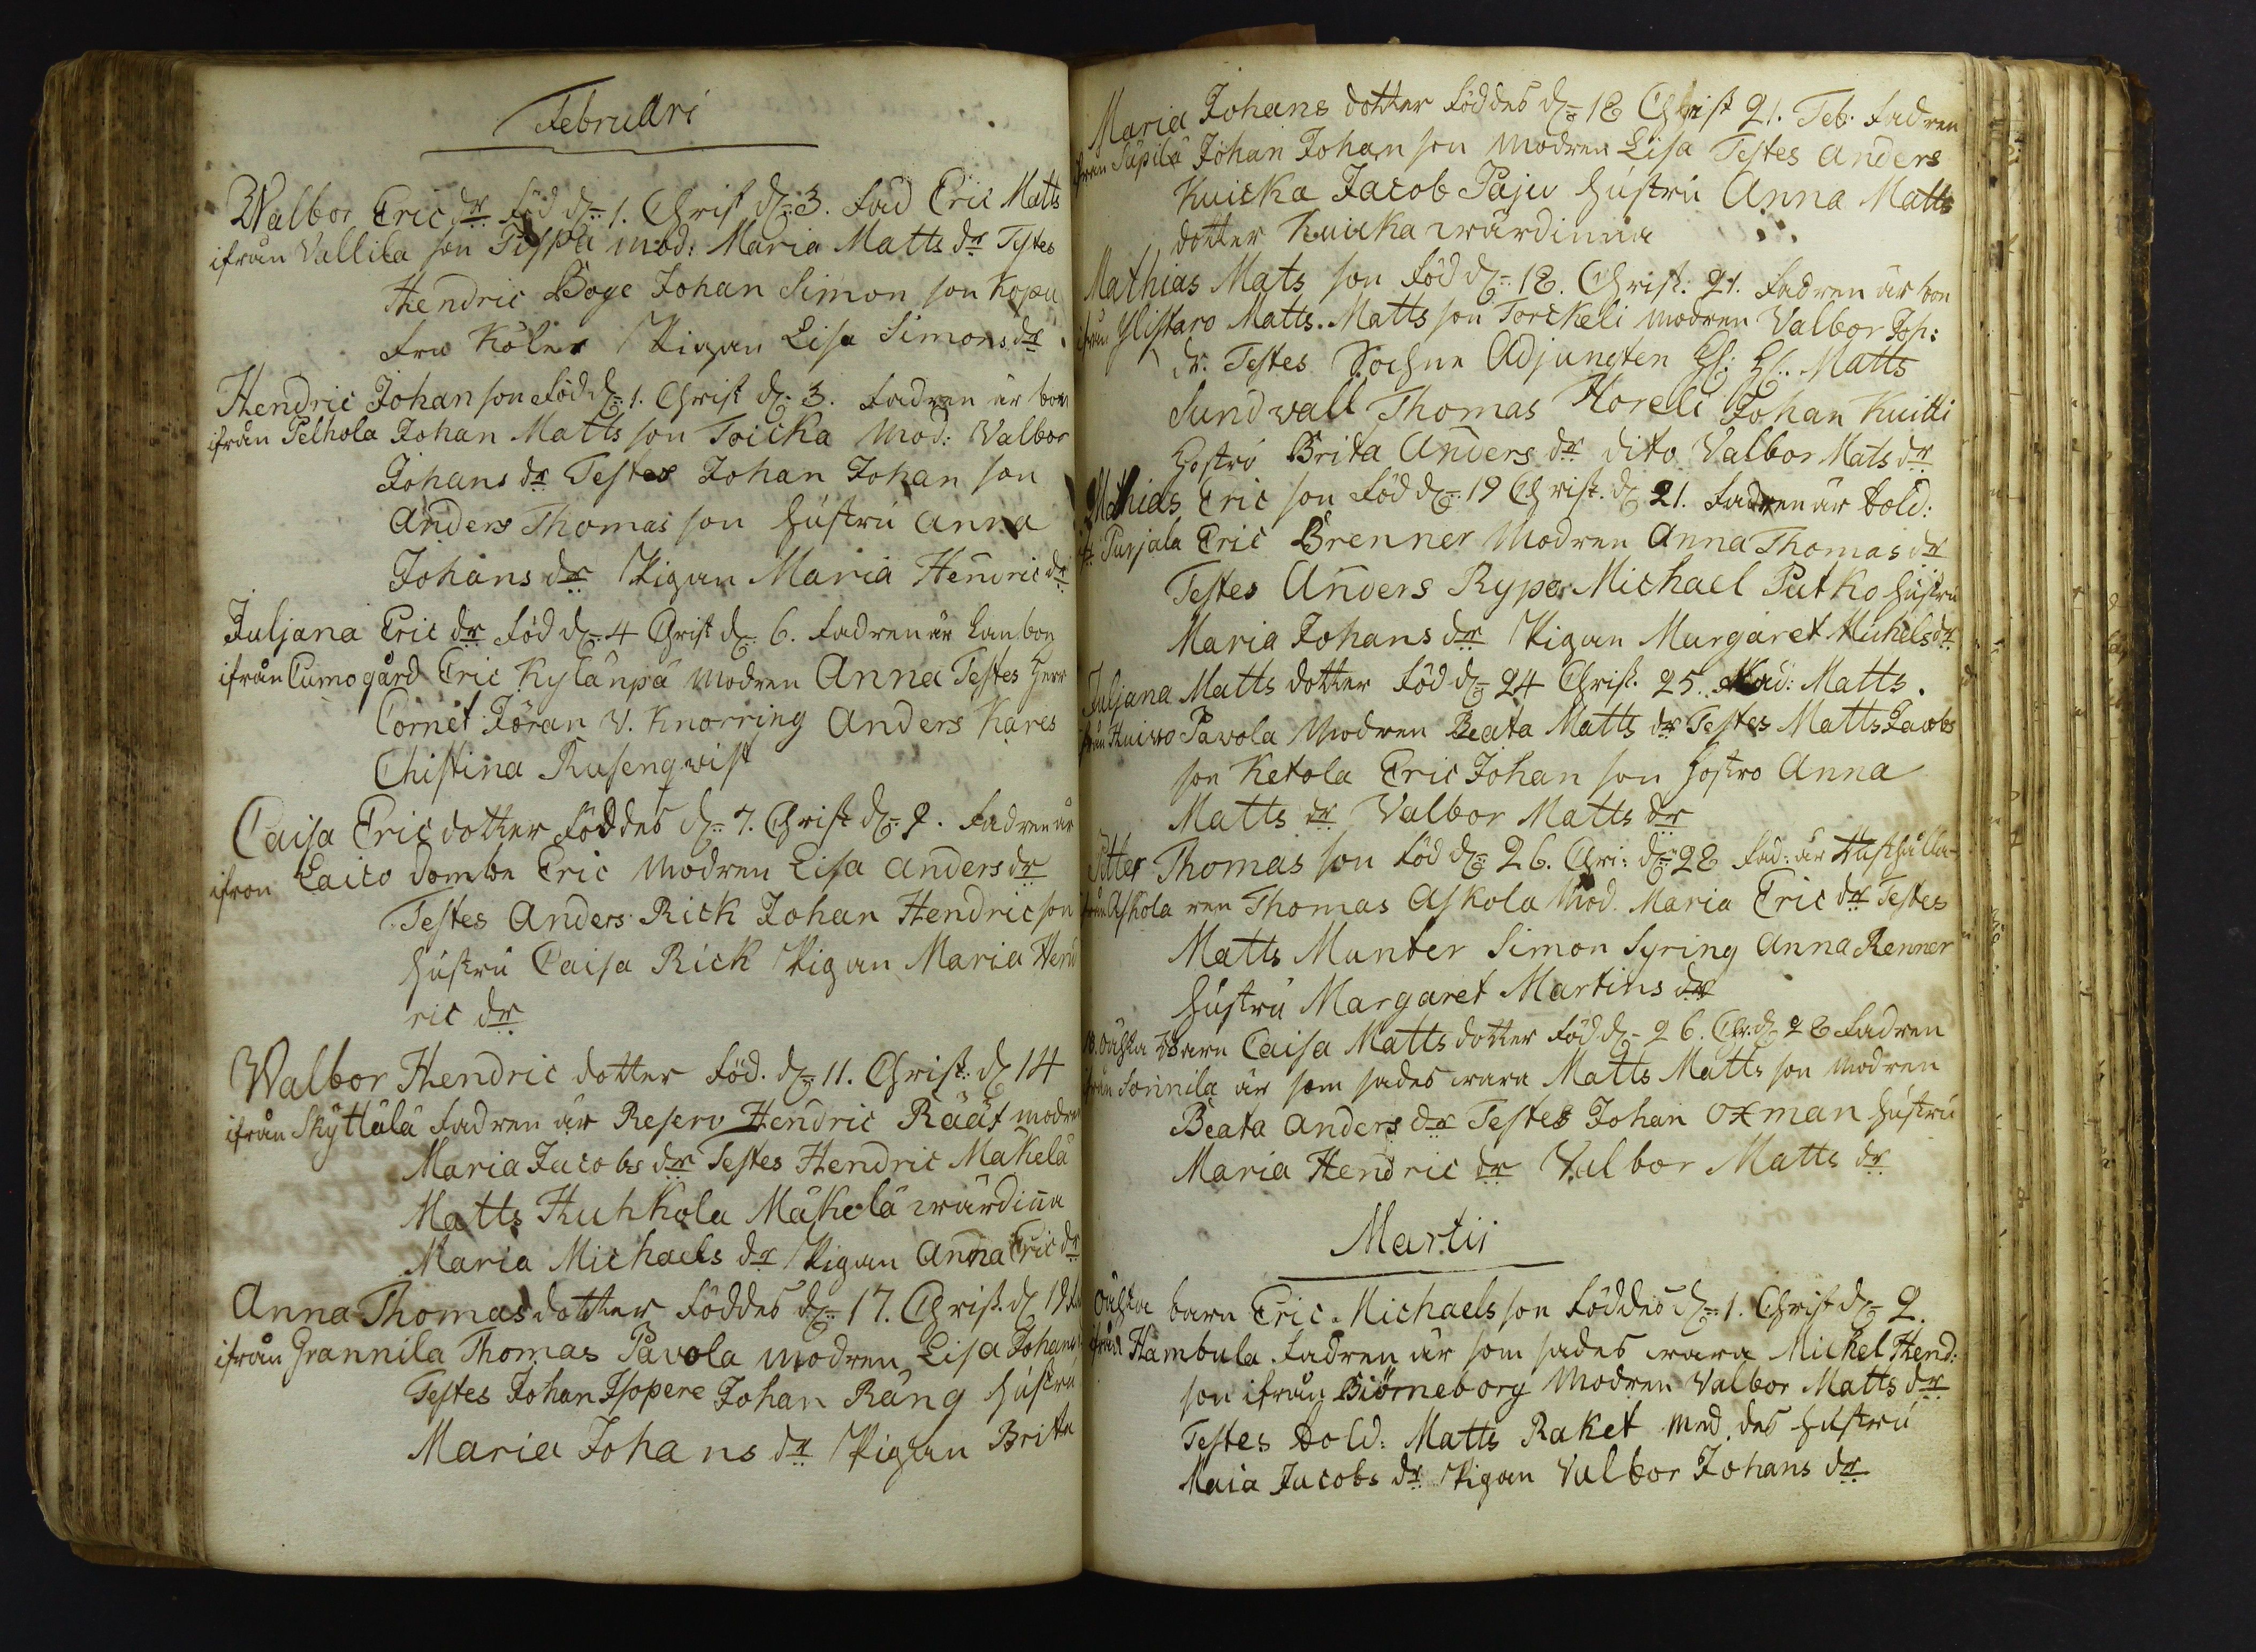 Februari
Walbor Eric dr född d: 1. Christ d: 3. Fad Eric Matts
ifrån Vallila son Teippu mod: Maria Matts dr Testes
Hendric Boge Johan Simon son Kopu
Fru Köler Pigan Lisa Simons dr
Hendric Johan son född d: 1. Christ d: 3. Fadren är bon
ifrån Pelhola Johan Matts son Toicka Mod: Valbor
Johans dr Testes Johan Johan son
Anders Thomas son hustru Anna
Johans dr Pigan Maria Hendric dr
Juljana Eric dr född d: 4 Christ d: 6. Fadren är Lanbon
ifrån Cumogård Eric Kylänpä Modren Anna Testes Herr
Cornet Jöran V. Knorring Anders Kares
Chistina Rusenqwist
Caisa Eric dotter föddes d: 7. Christ d: 9. Fadren är
ifron Laito dombo Eric Modren Lisa Anders dr
Testes Anders Rick Johan Hendric son
hustru Caisa Rick Pigan Maria Hend
ric dr
Walbor Hendric dotter föd. d: 11. Christ: d 14
ifrån Skyttälä Fadren är Reserv Hendric Räät modren
Maria Jacobs dr Testes Hendric Mäkelä
Matts Huhkola Mäkelä wärdiña
Maria Michaels dr Pigan Anna Eric dr
Anna Thomas dotter föddes d: 17. Christ. d 19 Fa
ifrån Grannila Thomas Pavola modren Lisa Johans
Testes Johan Isopere Johan Räng hustru
Maria Johans dr Pigan Brita
Maria Johans dotter föddes d: 18 Christ 21. Feb. Fadren
ifrån Säpilä Johan Johan son Modren Lisa Testes Anders
Kuicka Jacob Paju hustru Anna Matts
dotter Kuicka wärdinna
Mathias Mats son född d: 18. Christ: 21. Fadren är bon
ifrån Ylistaro Matts Matts son Torckeli modren Valbor Joh:
dr. Testes Sochne Adjungten H: H: Matts
Sundwall Thomas Horeli Johan Kuitti
Hostro Brita Anders dr dito Valbor Mats dr
Mathias Eric son född d: 19 Christ. d 21. Fadren är Sold:
fr: Purjala Eric Brenner Modren Anna Thomas dr
Testes Anders Ryper Michael Putko hustru
Maria Johans dr Pigan Margaret Michels dr
Juljana Matts dotter född d: 24 Christ. 25. Fad: Matts.
ifrån Kuivo Pavola Modren Beata Matts dr Testes Matts Jacobs
son Ketola Eric Johan son Hostro Anna
Matts dr Valbor Matts dr
Petter Thomas son född d: 26. Chri: d: 28 Fad: är Husthålla
ifrån Askola ren Thomas Askola Mod. Maria Eric dr Testes
Matts Munter Simon Syring Anna Renner
hustru Margaret Martins dr
oächta Barn Caisa Matts dotter född d: 26. Chr: d 28 Fadren
ifrån Sonnila är som sades wara Matts Matts son modren
Beata Anders dr Testes Johan Oxman hustru
Maria Hendric dr Valbor Matts dr
Martii
oächta barn Eric Michaels son föddes d: 1. Christ d: 2.
ifrån Hambula Fadren är som sades wara Mickel Hend:
son ifrån Biörneborg Modren Valbor Matts dr
Testes Sold: Matts Raket med des hustru
Maia Jacobs dr Pigan Valbor Johans dr